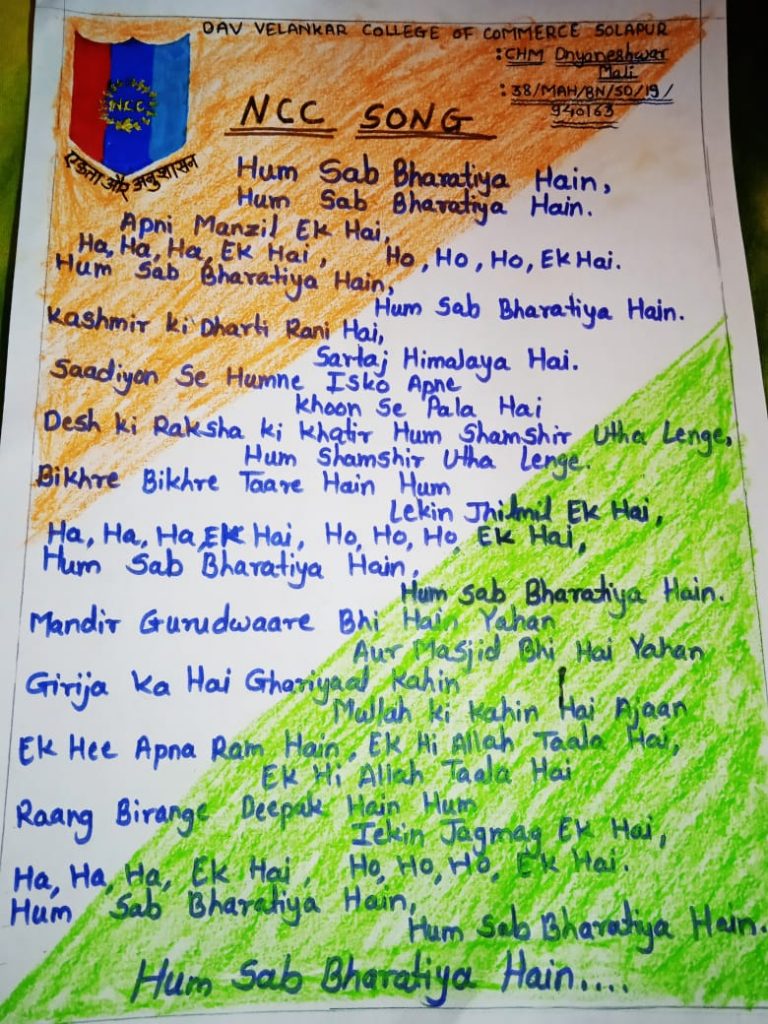 DAV VELANKAR COLLEGE OF COMMERCE SOLAPUR
: CHM Dnyaneshwar
Mali
: 38/MAH/BN/SD/19/
940163
NCC
एकता और अनुशासन
NCC SONG
Hum Sab Bharatiya Hain,
Hum Sab Bharatiya Hain.
Apni Manzil Ek Hai,
Ha, Ha, Ha, Ek Hai, Ho, Ho, Ho, Ek Hai.
Hum Sab Bharatiya Hain,
Hum Sab Bharatiya Hain.
Kashmir ki Dharti Rani Hai,
Sartaj Himalaya Hai.
Saadiyon Se Humne Isko Apne
Khoon Se Pala Hai
Desh ki Raksha ki Khatir Hum Shamshir Utha Lenge,
Hum Shamshir Utha Lenge.
Bikhre Bikhre Taare Hain Hum
Lekin Jhilmil Ek Hai,
Ha, Ha, Ha, Ek Hai, Ho, Ho, Ho, Ek Hai,
Hum Sab Bharatiya Hain,
Hum Sab Bharatiya Hain.
Mandir Gurudwaare Bhi Hain Yahan
Aur Masjid Bhi Hai Yahan
Girija Ka Hai Ghariyaal Kahin
Mullah ki Kahin Hai Ajaan
Ek Hee Apna Ram Hain, Ek Hi Allah Taala Hai,
Ek Hi Allah Taala Hai
Raang Birange Deepak Hain Hum
lekin Jagmag Ek Hai,
Ha, Ha, Ha, Ek Hai, Ho, Ho, Ho, Ek Hai.
Hum Sab Bharatiya Hain,
Hum Sab Bharatiya Hain.
Hum Sab Bharatiya Hain....